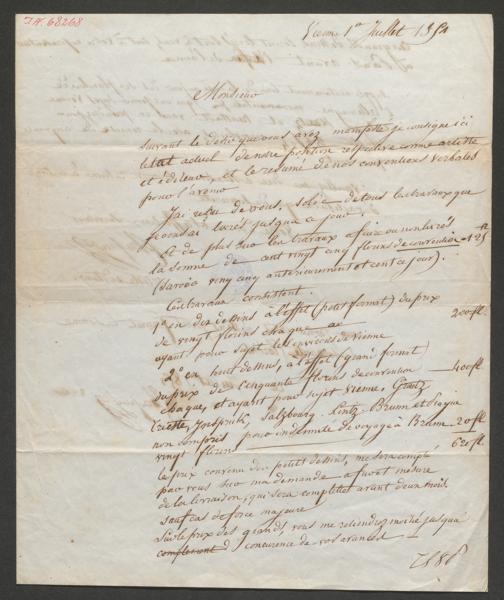 I.N. 68268
Vienne 1er Juillet 1854
Monsieur
Suivant le désir que vous avez manifesté je consigne ici
letat actuel de notre position respective comme artiste
et éditeur, et le résumé de nos conventions verbales
pour l'avenir
J'ai reçu de vous, solde de tous les travaux que
je vous ai livrés jusqu'à ce jour.
Et de plus sur les travaux a faire ou non livrés
la somme de cent vingt cinq florins de convention 125 fl
(savoir vingt cinq anterieurement et cent ce jour).
Ces travaux consistent.
1° en dix dessins à l'effet (petit format) du prix
de vingt florins chaque 200 fl
ayant pour sujet les environs de Vienne
2° en huit dessins, à l'effet (grand format)
du prix de Cinquante florins de convention 400 fl
chaque, et ayant pour sujet Vienne, Gratz
Trieste, Innspruk, Salzbourg, Lintz, Brunn et
non compris pour indemnité de voyage à Brunn 20 fl
vingt florins 620 fl
le prix convenu des petits dessins, me sera compté
par vous sur ma demande a fur et mesure
de la livraison, qui sera complettée avant deux mois
sauf cas de force majeure
Sur le prix des grands, vous me retiendrez moitié jusqu'à
concurence de vos avances